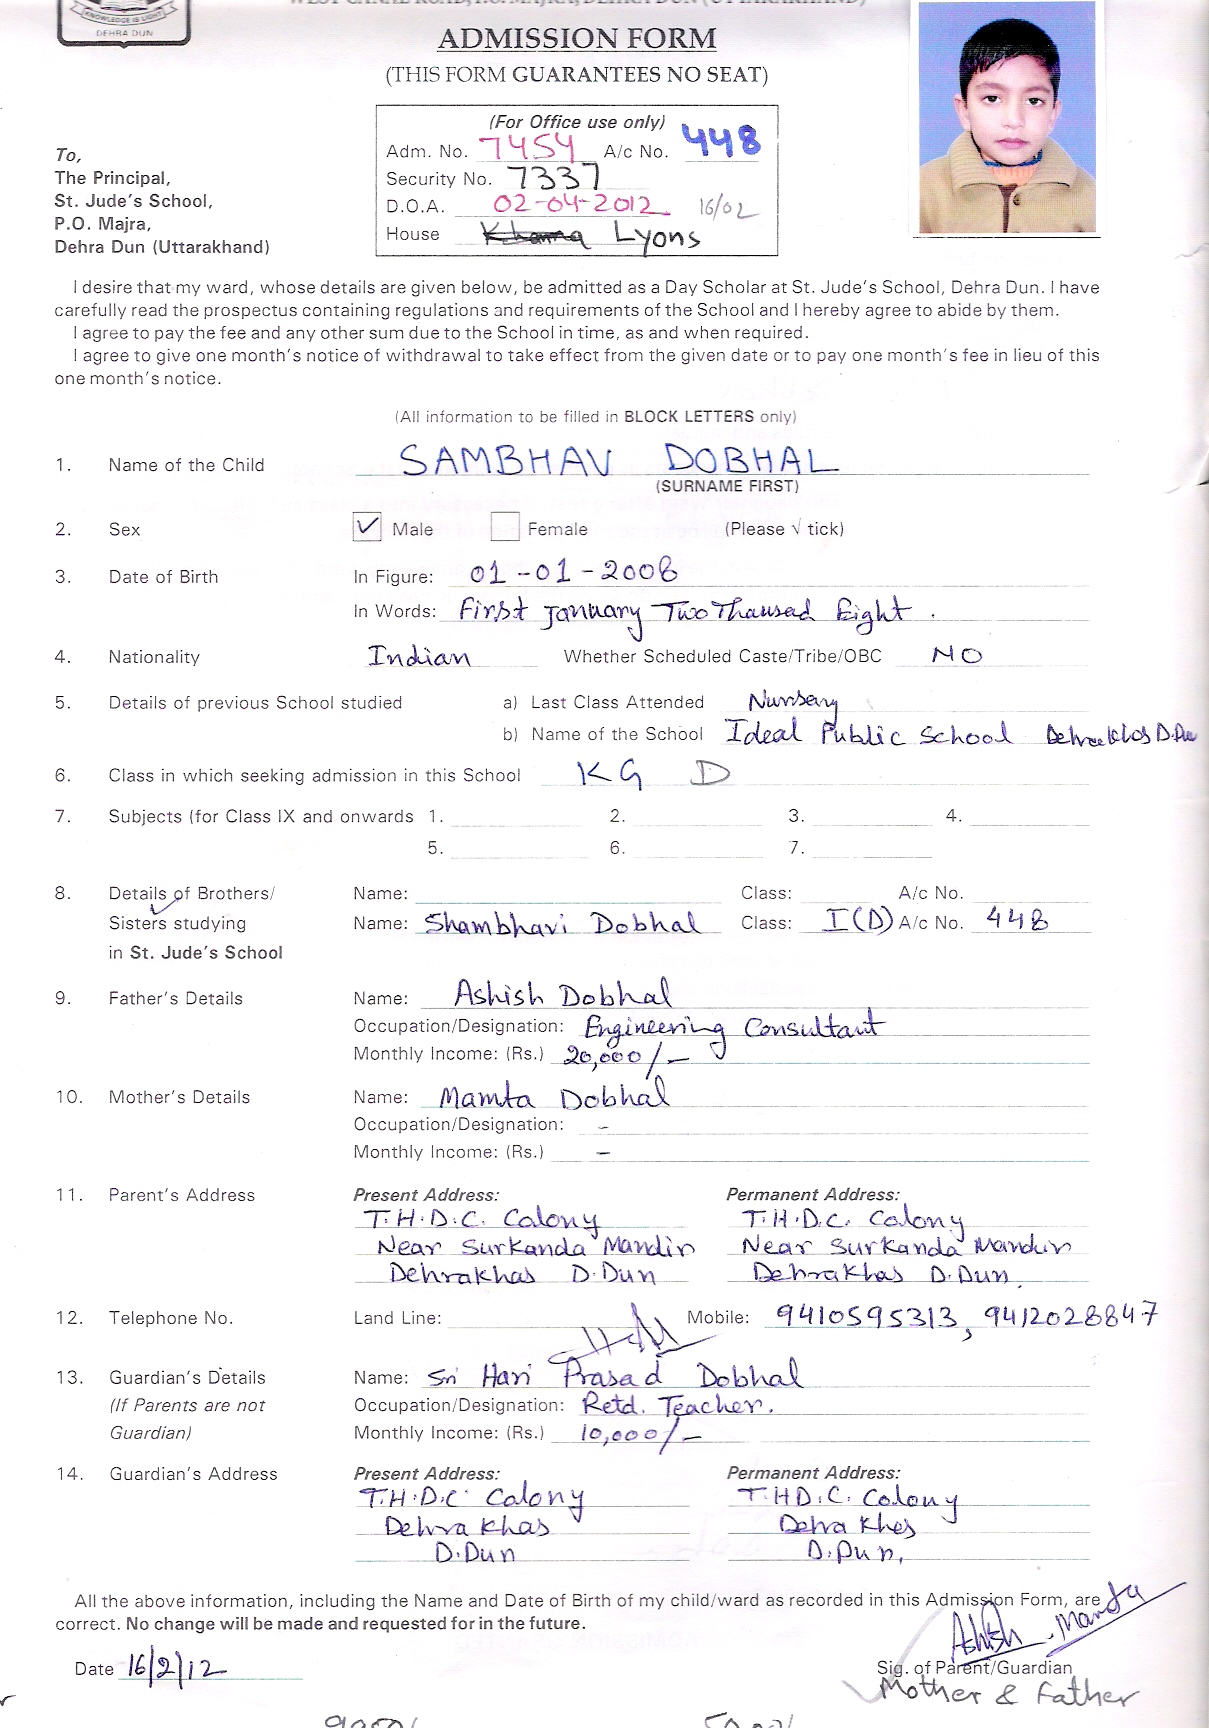 KNOWLEDGE IS LIGHT
DEHRA DUN
ADMISSION FORM
(THIS FORM GUARANTEES NO SEAT)
(For Office use only)
Adm. No. 7454 A/c No. 448
Security No. 7337
D.O.A. 02-04-2012 16/02
House Khanna Lyons
To,
The Principal,
St. Jude's School,
P.O. Majra,
Dehra Dun (Uttarakhand)
I desire that my ward, whose details are given below, be admitted as a Day Scholar at St. Jude's School, Dehra Dun. I have
carefully read the prospectus containing regulations and requirements of the School and I hereby agree to abide by them.
I agree to pay the fee and any other sum due to the School in time, as and when required.
I agree to give one month's notice of withdrawal to take effect from the given date or to pay one month's fee in lieu of this
one month's notice.
(All information to be filled in BLOCK LETTERS only)
1. Name of the Child SAMBHAV DOBHAL
(SURNAME FIRST)
2. Sex ✓ Male Female (Please √ tick)
3. Date of Birth In Figure: 01-01-2008
In Words: First January Two Thausad Eight .
4. Nationality Indian Whether Scheduled Caste/Tribe/OBC NO
5. Details of previous School studied a) Last Class Attended Nursery
b) Name of the School Ideal Public School Dehrakhas D.Dun
6. Class in which seeking admission in this School KG D
7. Subjects (for Class IX and onwards 1. 2. 3. 4.
5. 6. 7.
8. Details of Brothers/ Name: Class: A/c No.
Sisters studying Name: Shambhavi Dobhal Class: I(D) A/c No. 448
in St. Jude's School
9. Father's Details Name: Ashish Dobhal
Occupation/Designation: Engineering Consultant
Monthly Income: (Rs.) 20,000/-
10. Mother's Details Name: Mamta Dobhal
Occupation/Designation: -
Monthly Income: (Rs.) -
11. Parent's Address Present Address: Permanent Address:
T.H.D.C. Colony T.H.D.C. Colony
Near Surkanda Mandir Near Surkanda Mandir
Dehrakhas D.Dun Dehrakhas D.Dun.
12. Telephone No. Land Line: Mobile: 9410595313, 9412028847
13. Guardian's Details Name: Sri Hari Prasad Dobhal
(If Parents are not Occupation/Designation: Retd. Teacher.
Guardian) Monthly Income: (Rs.) 10,000/-
14. Guardian's Address Present Address: Permanent Address:
T.H.D.C. Colony T.HD.C. Colony
Dehra Khas Dehra Khas
D.Dun D.Dun.
All the above information, including the Name and Date of Birth of my child/ward as recorded in this Admission Form, are
correct. No change will be made and requested for in the future.
Ashish Mamta
Date 16/2/12 Sig. of Parent/Guardian
Mother & Father